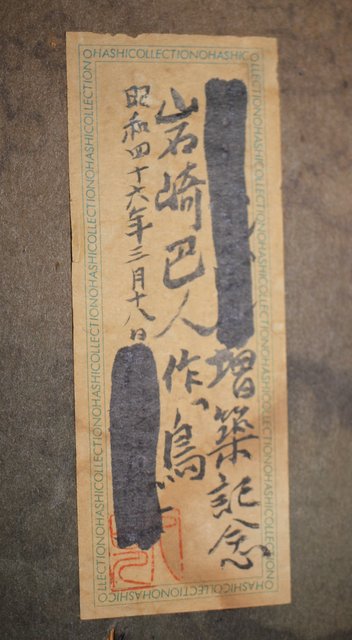 増築記念
岩崎巴人作、鳥
昭和四十六年三月十八日
OHASHICOLLECTIONOHASHIC
OHASHICOLLECTIONOHASHICOLLECTIONOHASHICOLLECTION
OHASHICOLLECTIONOHASHICOLLECTIONOHASHICOLLECTION
COLLECTIONOHASHICOLLECTIONO